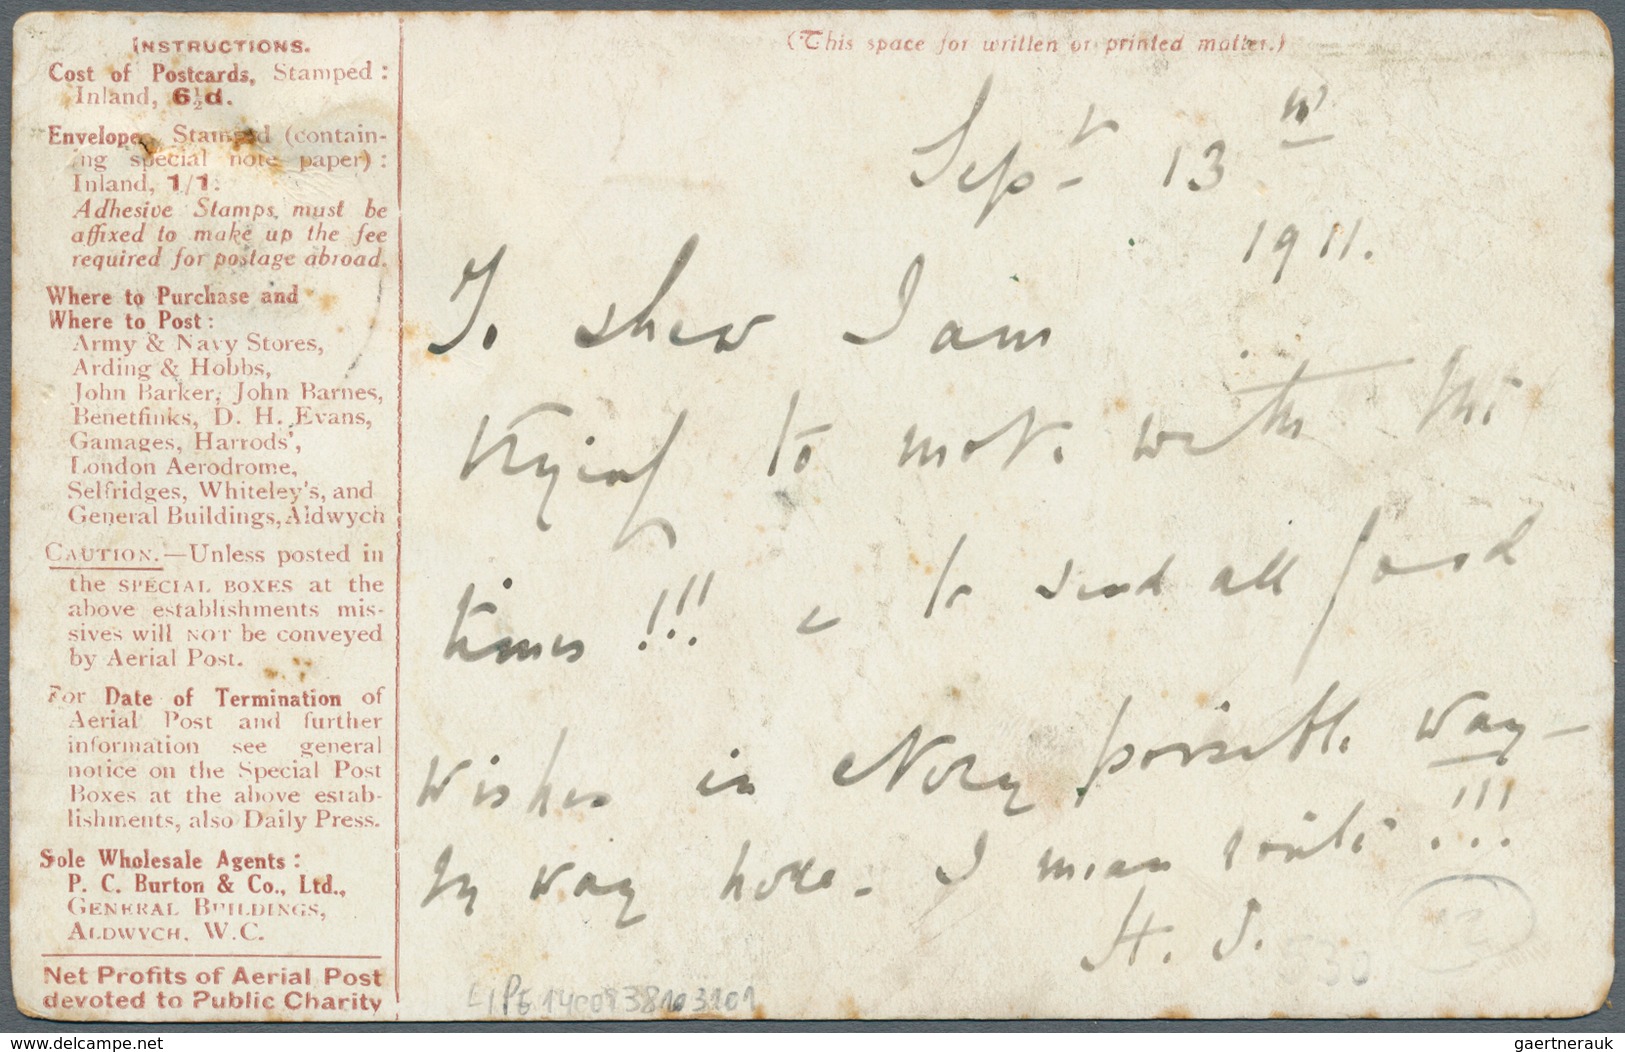 INSTRUCTIONS.
Cost of Postcards, Stamped :
Inland, 6½d.
Envelopes, Stamped (contain-
ing special note paper) :
Inland, 1/1.
Adhesive Stamps, must be
affixed to make up the fee
required for postage abroad.
Where to Purchase and
Where to Post :
Army & Navy Stores,
Arding & Hobbs,
John Barker, John Barnes,
Benetfinks, D. H. Evans,
Gamages, Harrods',
London Aerodrome,
Selfridges, Whiteley's, and
General Buildings, Aldwych
CAUTION.—Unless posted in
the SPECIAL BOXES at the
above establishments mis-
sives will NOT be conveyed
by Aerial Post.
For Date of Termination of
Aerial Post and further
information see general
notice on the Special Post
Boxes at the above estab-
lishments, also Daily Press.
Sole Wholesale Agents :
P. C. Burton & Co., Ltd.,
GENERAL BUILDINGS,
ALDWYCH, W.C.
Net Profits of Aerial Post
devoted to Public Charity
(This space for written or printed matter.)
Sept 13
1911.
To shew I am
trying to move with the
times !!! & to send all good
wishes in every possible way—
by way I mean route !!!
H. J.
530
gaertnerauk
www.delcampe.net